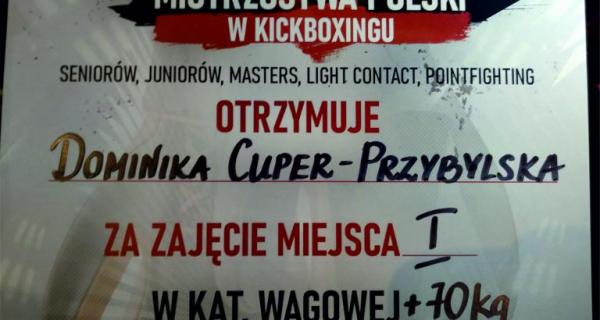 MISTRZOSTWA POLSKI
W KICKBOXINGU
SENIORÓW, JUNIORÓW, MASTERS, LIGHT CONTACT, POINTFIGHTING
OTRZYMUJE
DOMINIKA CUPER-PRZYBYLSKA
ZA ZAJĘCIE MIEJSCA I
W KAT. WAGOWEJ +70kg